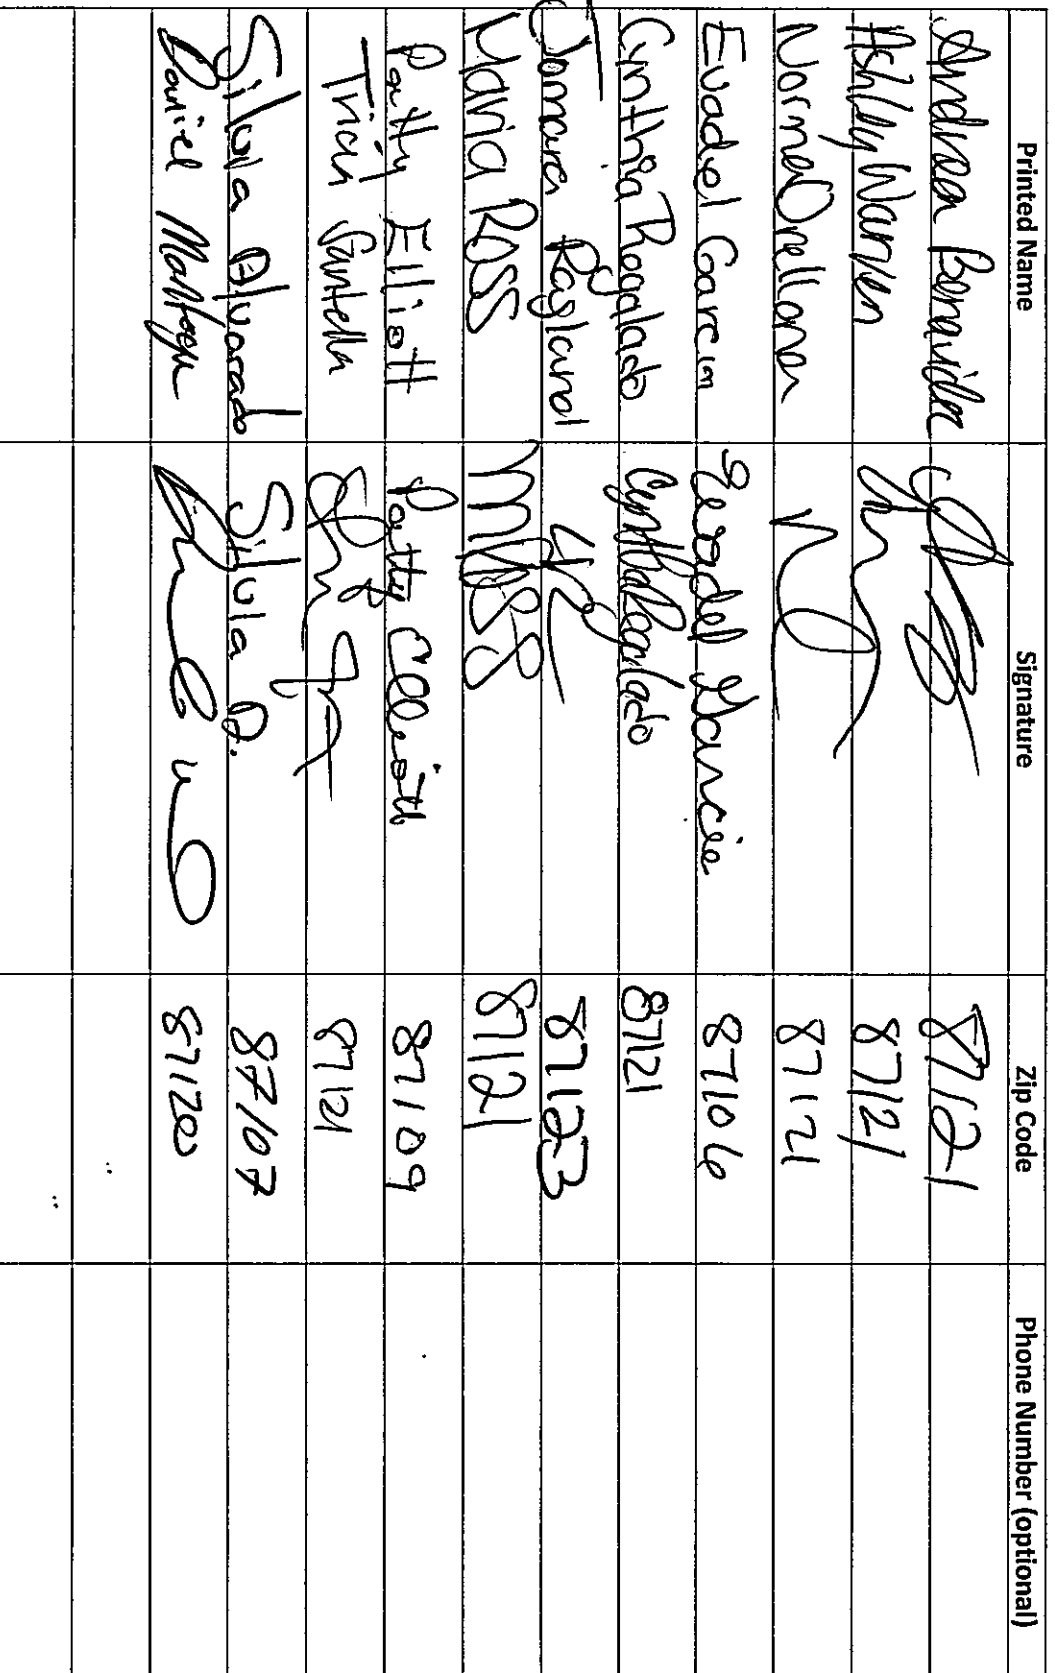 Printed Name Signature Zip Code Phone Number (optional)
Andrea Benavidez 87121
Ashley Warren 87121
Norma Orellana 87121
Evadel Garcia Evadel Garcia 87106
Cinthia Regalado Cynthia Regalado 87121
Tamara Ragland 87123
Maria Ross 87121
Patty Elliott Patty Elliott 87109
Tricia Santella 87121
Silvia Alvarado Silvia A. 87107
Daniel 87120